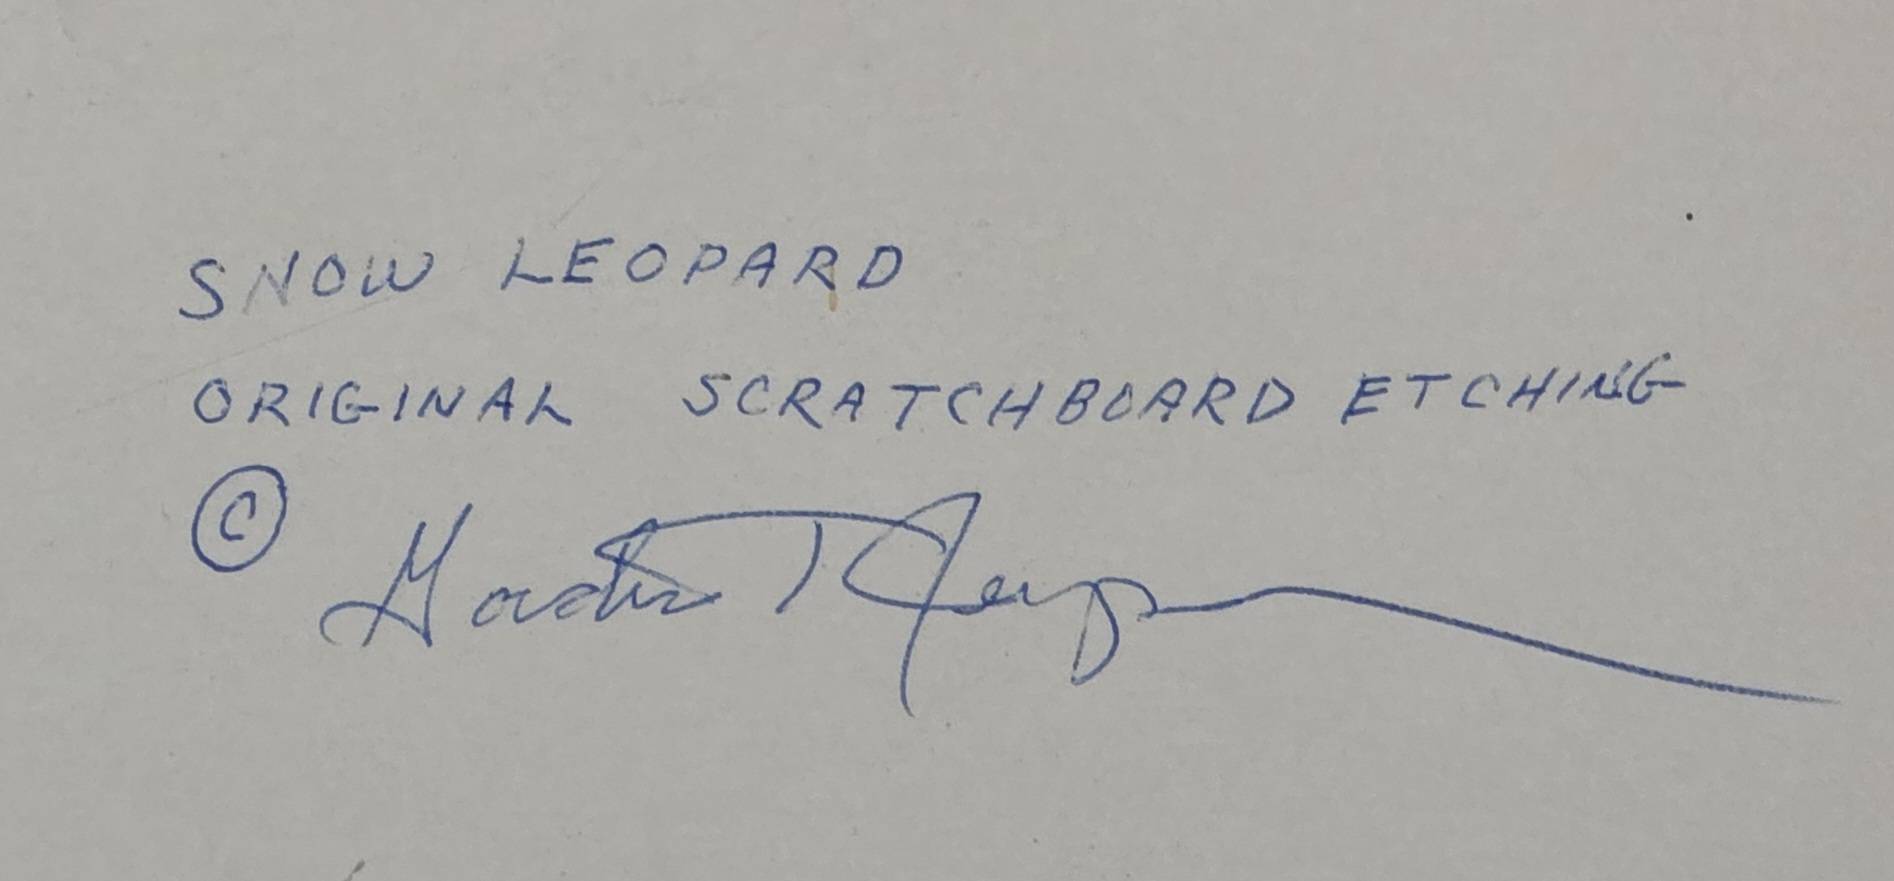 SNOW LEOPARD
ORIGINAL SCRATCHBOARD ETCHING
©